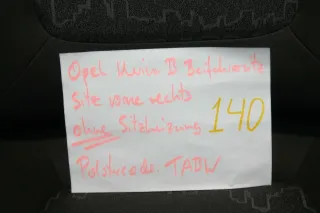 Opel Meriva B Beifahrersitz
Sitz vorne rechts
ohne Sitzheizung 140
Polstercode: TABW